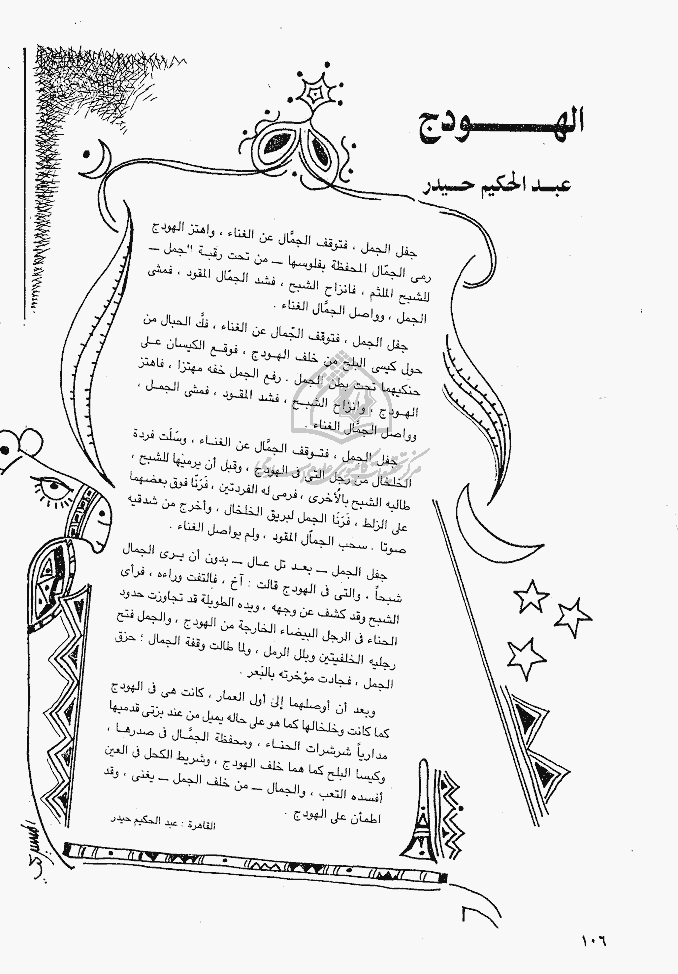 الهـودج
عبـد الحكيم حـيدر
جفل الجمل ، فتوقف الجمَّال عن الغناء ، واهتز الهودج
رمى الجمّال المحفظة بفلوسها ــ من تحت رقبة الجمل ــ
للشبح الملثم ، فانزاح الشبح ، فشد الجمّال المقود ، فمشى
الجمل ، وواصل الجمَّال الغناء .
جفل الجمل ، فتوقف الجّمال عن الغناء ، فكَّ الحبال من
حول كيسى البلح من خلف الهـودج ، فوقـع الكيسان على
حنكيهما تحت بطن الجمل . رفع الجمل خفه مهتزا ، فاهتز
الهـودج ، وانزاح الشبـح ، فشد المقـود ، فمشى الجمـل ،
وواصل الجمَّال الغناء .
جفل الجمل ، فتـوقف الجمَّال عن الغنـاء ، وسَلَت فردة
الخلخال من رجل التى فى الهودج ، وقبل أن يرميَها للشبح ،
طالبه الشبح بالأخرى ، فرمى له الفردتين ، فَرَنّا فوق بعضهما
على الزلط ، فَرَنَا الجمل لبريق الخلخال ، وأخرج من شدقيه
صوتا . سحب الجمّال المقود ، ولم يواصل الغناء .
جفل الجمل ــ بعـد تل عـال ــ بدون أن يـرى الجمال
شبحاً ، والتى فى الهودج قالت : آخ ، فالتفت وراءه ، فرأى
الشبح وقد كشف عن وجهه ، ويده الطويلة قد تجاوزت حدود
الحناء فى الرجل البيضاء الخارجة من الهودج ، والجمل فتح
رجليه الخلفيتين وبلل الرمل ، ولما طالت وقفة الجمال ؛ حزق
الجمل ، فجادت مؤخرته بالبَعر .
وبعد أن أوصلهما إلى أول العمار ، كانت هى فى الهودج
كما كانت وخلخالها كما هو على حاله يميل من عند بزتى قدميها
مدارياً شرشرات الحنـاء ، ومحفظة الجمَّـال فى صدرهـا ،
وكيسا البلح كما هما خلف الهودج ، وشريط الكحل فى العين
أفسده التعب ، والجمال ــ من خلف الجمل ــ يغنى ، وقد
اطمأن على الهودج .
القاهرة : عبد الحكيم حيدر
١٠٦